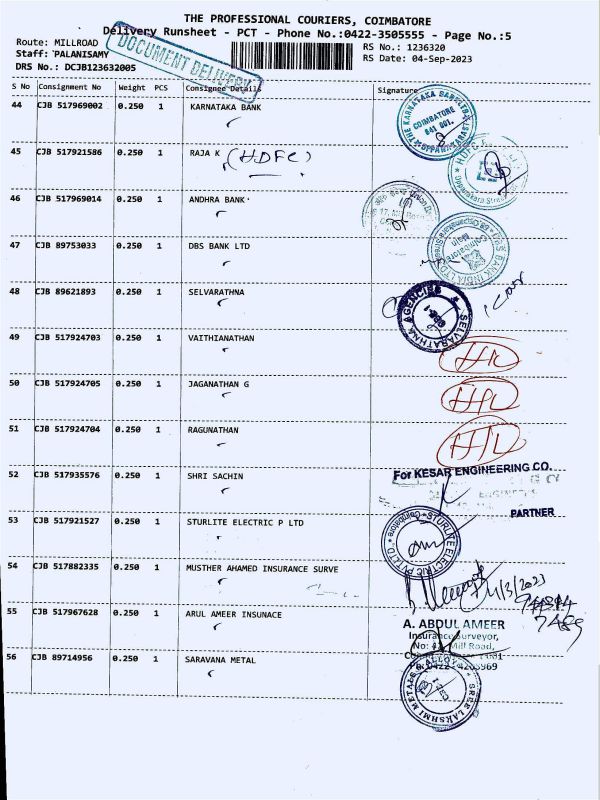 THE PROFESSIONAL COURIERS, COIMBATORE
Delivery Runsheet - PCT - Phone No.:0422-3505555 - Page No.:5
Route: MILLROAD
RS No.: 1236320
Staff: PALANISAMY
RS Date: 04-Sep-2023
DRS No.: DCJB123632005
DOCUMENT DELIVERY
S No Consignment No Weight PCS Consignee Details Signature
44 CJB 517969002 0.250 1 KARNATAKA BANK
45 CJB 517921586 0.250 1 RAJA K (HDFC)
46 CJB 517969014 0.250 1 ANDHRA BANK
47 CJB 89753033 0.250 1 DBS BANK LTD
48 CJB 89621893 0.250 1 SELVARATHNA
SELVARATHNA AGENCIES
49 CJB 517924703 0.250 1 VAITHIANATHAN
50 CJB 517924705 0.250 1 JAGANATHAN G
51 CJB 517924704 0.250 1 RAGUNATHAN
52 CJB 517935576 0.250 1 SHRI SACHIN
For KESAR ENGINEERING CO.
PARTNER
53 CJB 517921527 0.250 1 STURLITE ELECTRIC P LTD
STURLITE ELECTRIC P LTD
54 CJB 517882335 0.250 1 MUSTHER AHAMED INSURANCE SURVE
55 CJB 517967628 0.250 1 ARUL AMEER INSUNACE
A. ABDUL AMEER
Insurance Surveyor,
Mill Road,
56 CJB 89714956 0.250 1 SARAVANA METAL
SREE LAKSHMI METAL